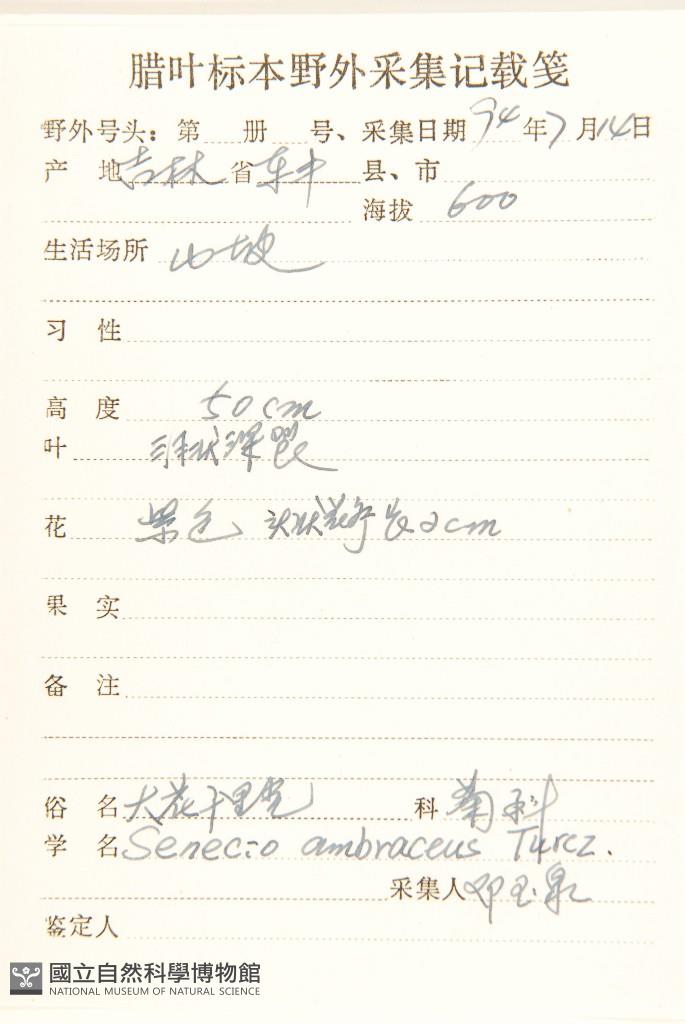 腊叶标本野外采集记载笺
野外号头：第 册 号、采集日期 94 年 7 月 14 日
产 地 吉林 省 县、市
海拔 600
生活场所 山坡
习 性
高 度 50cm
叶 羽状深裂
花 紫色 头状花序长2cm
果 实
备 注
俗 名 大花千里光 科 菊科
学 名 Senecio ambraceus Turcz.
采集人 邓玉泉
鉴定人
國立自然科學博物館
NATIONAL MUSEUM OF NATURAL SCIENCE